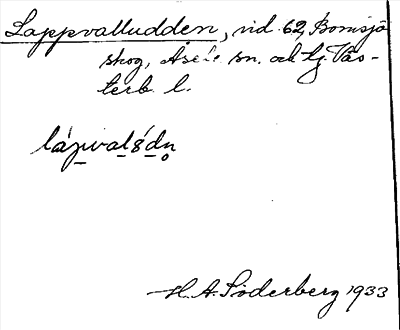 Lappvalludden, vid 62, Bomsjö
skog, Åsele sn. och tg. Väs-
terb. l.
lápvalšdn̥
H. A. Söderberg 1933